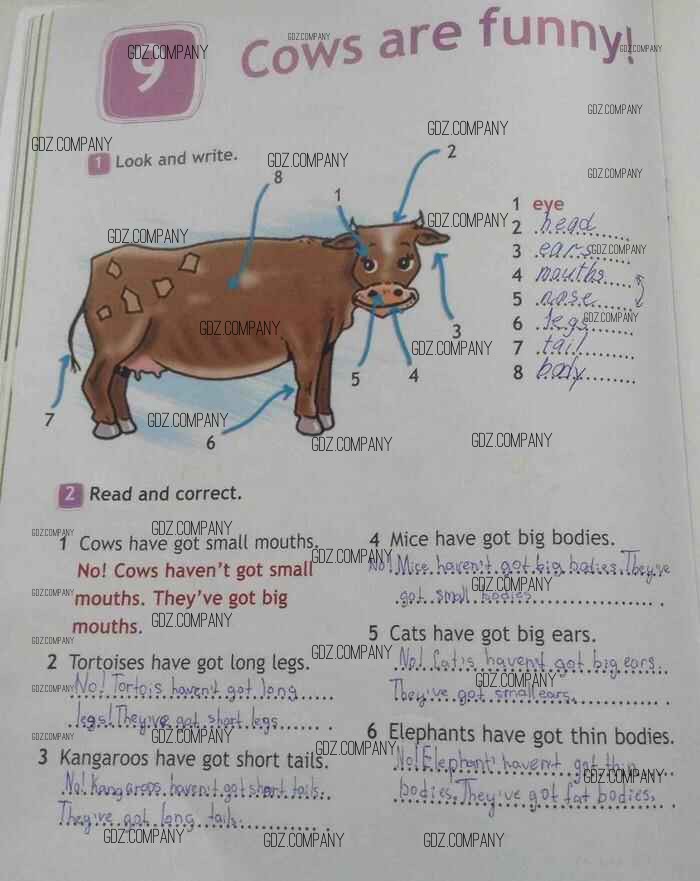 9
Cows are funny!
1 Look and write.
8
1
2
3
4
5
6
7
1 eye
2 head
3 ears
4 mouths
5 nose
6 legs
7 tail
8 body
2 Read and correct.
1 Cows have got small mouths.
No! Cows haven't got small
mouths. They've got big
mouths.
2 Tortoises have got long legs.
No! Tortois haven't got long
legs! They've got short legs
3 Kangaroos have got short tails.
No! Kangaroos haven't got short tails.
They've got long tails.
4 Mice have got big bodies.
No! Mice haven't got big bodies. They've
got small bodies
5 Cats have got big ears.
No! Cat's haven't got big ears.
They've got small ears.
6 Elephants have got thin bodies.
No! Elephant' haven't got thin
bodies. They've got fat bodies.
GDZ.COMPANY